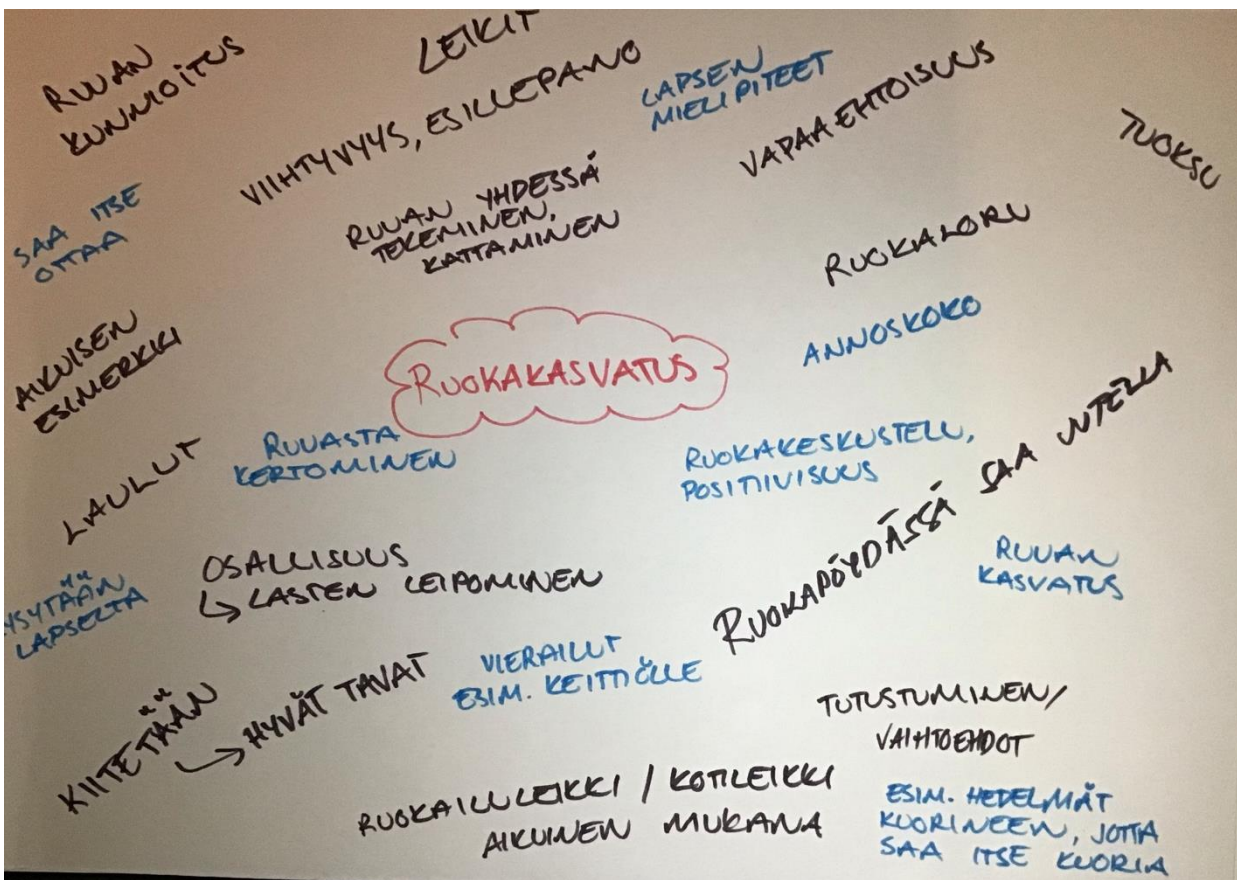 LEIKIT
RUUAN
KUNNIOITUS
VIIHTYVYYS, ESILLEPANO
LAPSEN
MIELIPITEET
VAPAAEHTOISUUS
TUOKSU
SAA ITSE
OTTAA
RUUAN YHDESSÄ
TEKEMINEN,
KATTAMINEN
RUOKALORU
AIKUISEN
ESIMERKKI
RUOKAKASVATUS
ANNOSKOKO
LAULUT
RUUASTA
KERTOMINEN
RUOKAKESKUSTELU,
POSITIIVISUUS
RUOKAPÖYDÄSSÄ SAA JUTELLA
YSYTÄÄN
LAPSELTA
OSALLISUUS
↳ LASTEN LEIPOMINEN
RUUAN
KASVATUS
KIITETÄÄN
↳ HYVÄT TAVAT
VIERAILUT
ESIM. KEITTIÖLLE
TUTUSTUMINEN/
VAIHTOEHDOT
RUOKAILULEIKKI / KOTILEIKKI
AIKUINEN MUKANA
ESIM. HEDELMÄT
KUORINEEN, JOTTA
SAA ITSE KUORIA